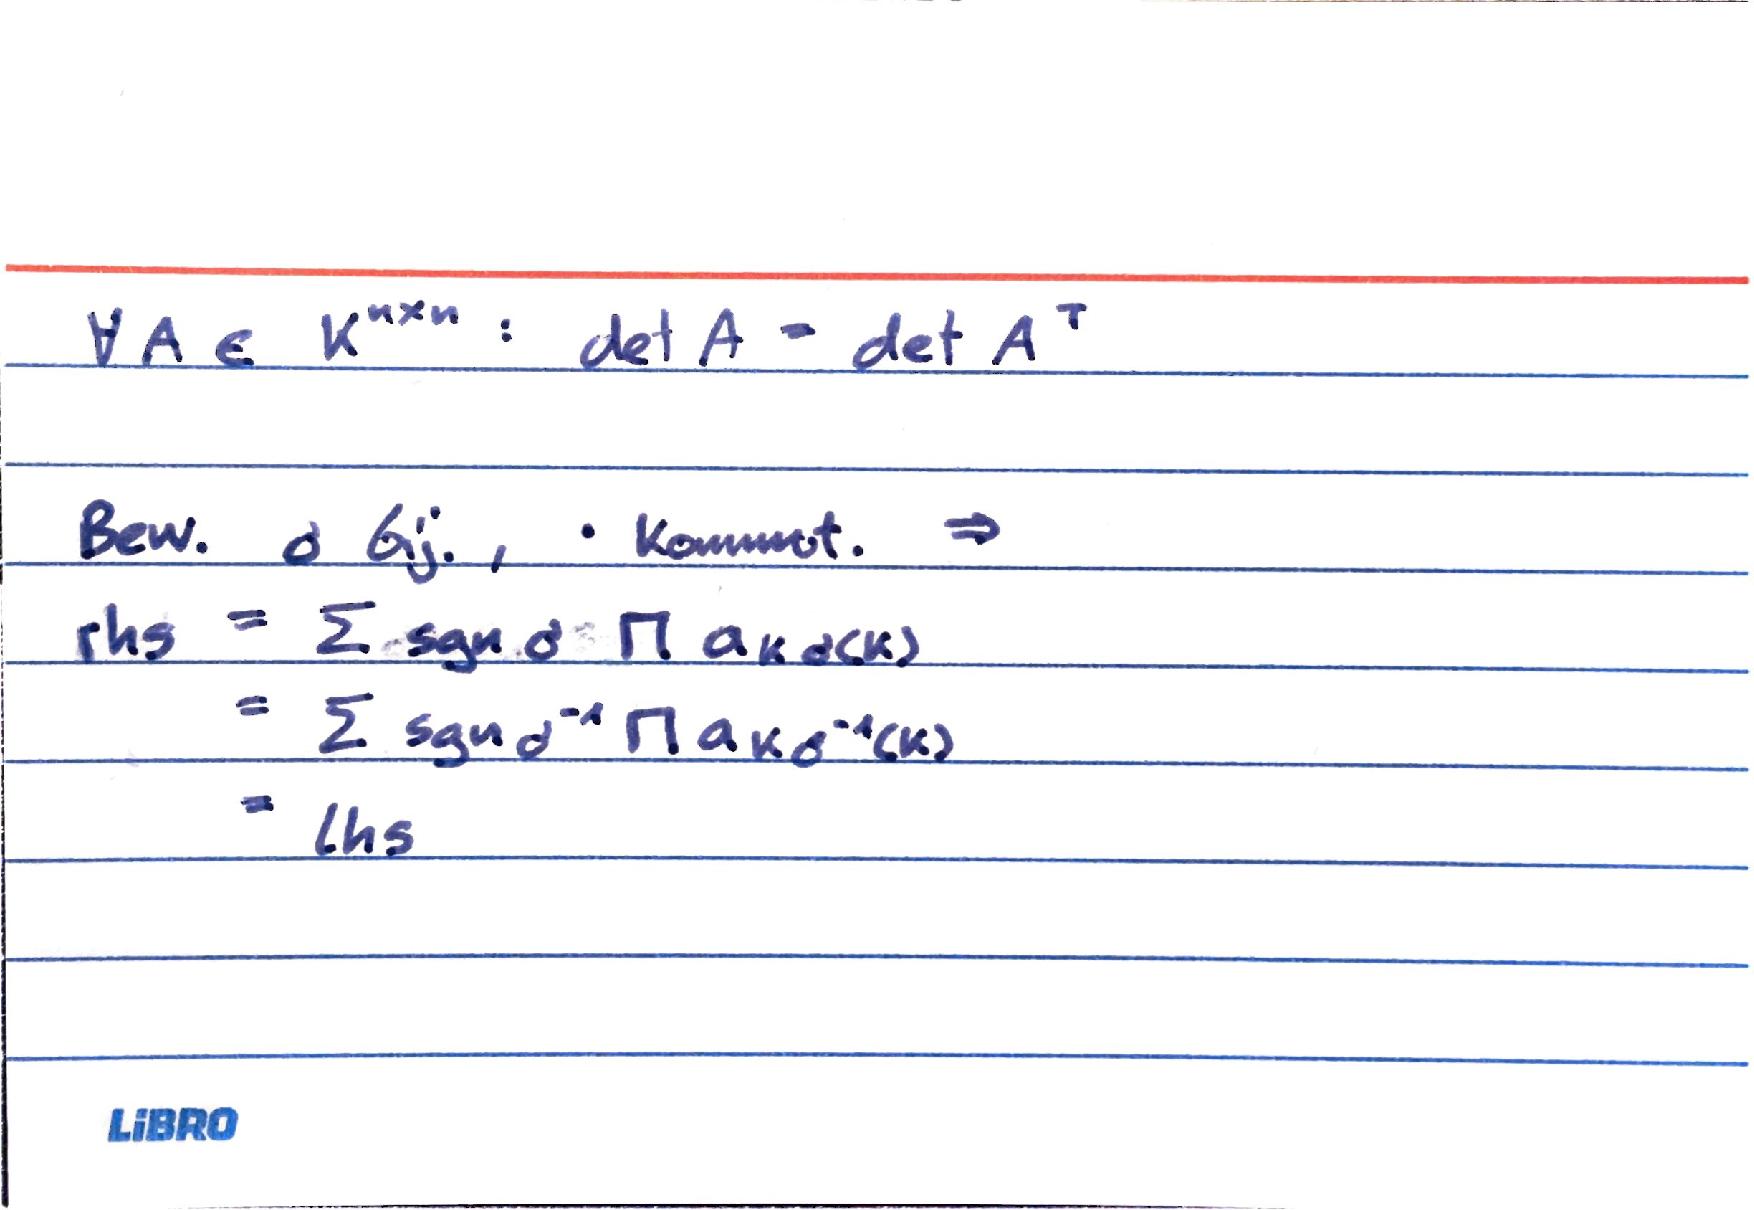 ∀ A ∈ K^{n×n} : det A = det A^T
Bew. σ bij., · kommut. ⇒
rhs = Σ sgn σ Π a_{k σ(k)}
= Σ sgn σ^{-1} Π a_{k σ^{-1}(k)}
= lhs
LiBRO